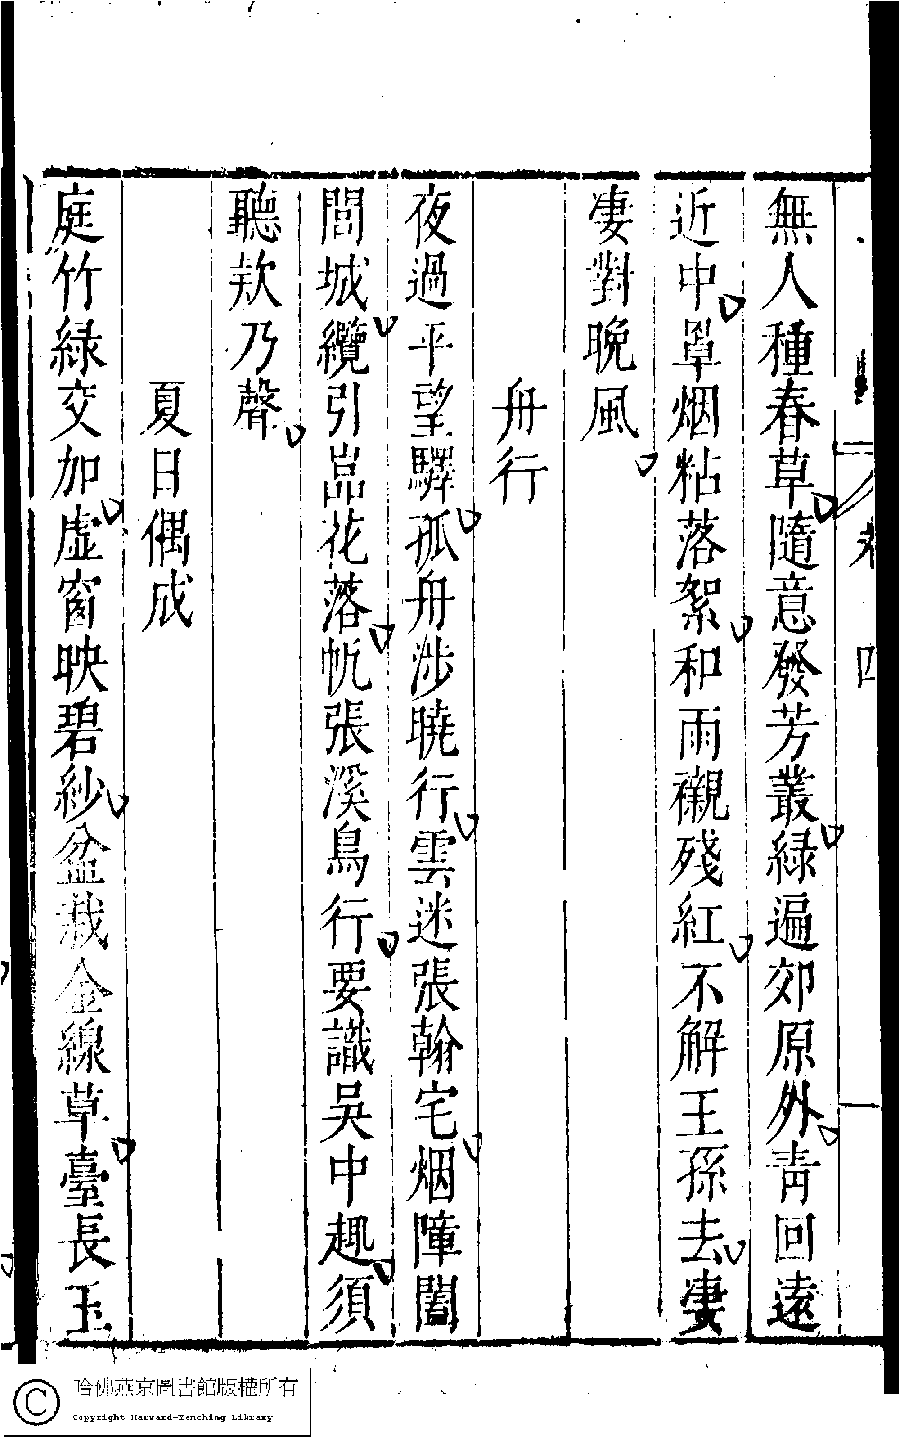 無人種春草隨意發芳叢緑遍郊原外青回遠
近中罩烟粘落絮和雨襯殘紅不解王孫去凄
凄對晚風
舟行
夜過平望驛孤舟涉曉行雲迷張翰宅烟障闔
閭城纜引嵓花落帆張溪鳥行要識吳中趣須
聽欸乃聲
夏日偶成
庭竹緑交加虛窗映碧紗盆栽金線草臺長玉
哈佛燕京圖書館版權所有
Copyright Harvard-Yenching Library